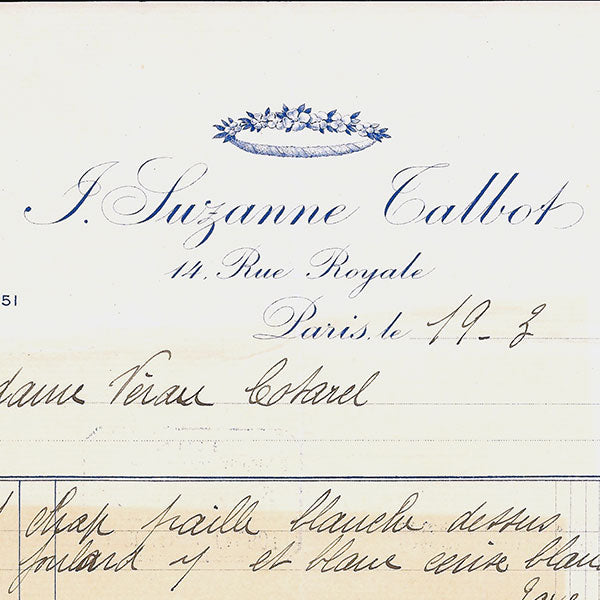 J. Suzanne Talbot
14, Rue Royale
51
Paris, le 19 - 3
dame Véran Cotarel
chap paille blanche dessus
foulard y et blanc cerise blanc